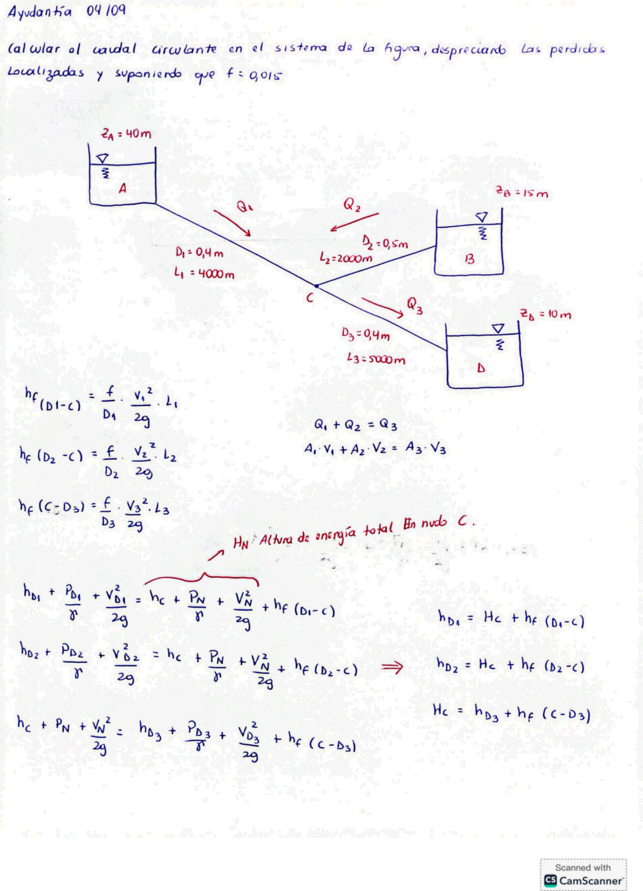 Ayudantía 04/09
Calcular el caudal circulante en el sistema de la figura, despreciando las perdidas
localizadas y suponiendo que f = 0,015
Z_A = 40m
A
Q1
Q2
Z_B = 15m
D1 = 0,4m
L1 = 4000m
D2 = 0,5m
L2 = 2000m
B
C
Q3
Z_D = 10m
D3 = 0,4m
L3 = 5000m
D
hf (D1-C) = f/D1 · V1²/2g · L1
Q1 + Q2 = Q3
hf (D2-C) = f/D2 · V2²/2g · L2
A1·V1 + A2·V2 = A3·V3
hf (C-D3) = f/D3 · V3²/2g · L3
HN: Altura de energía total En nudo C.
hD1 + PD1/γ + VD1²/2g = hc + PN/γ + VN²/2g + hf (D1-C)
hD1 = Hc + hf (D1-C)
hD2 + PD2/γ + VD2²/2g = hc + PN/γ + VN²/2g + hf (D2-C) ⇒
hD2 = Hc + hf (D2-C)
Hc = hD3 + hf (C-D3)
hc + PN + VN²/2g = hD3 + PD3/γ + VD3²/2g + hf (C-D3)
Scanned with
CS CamScanner